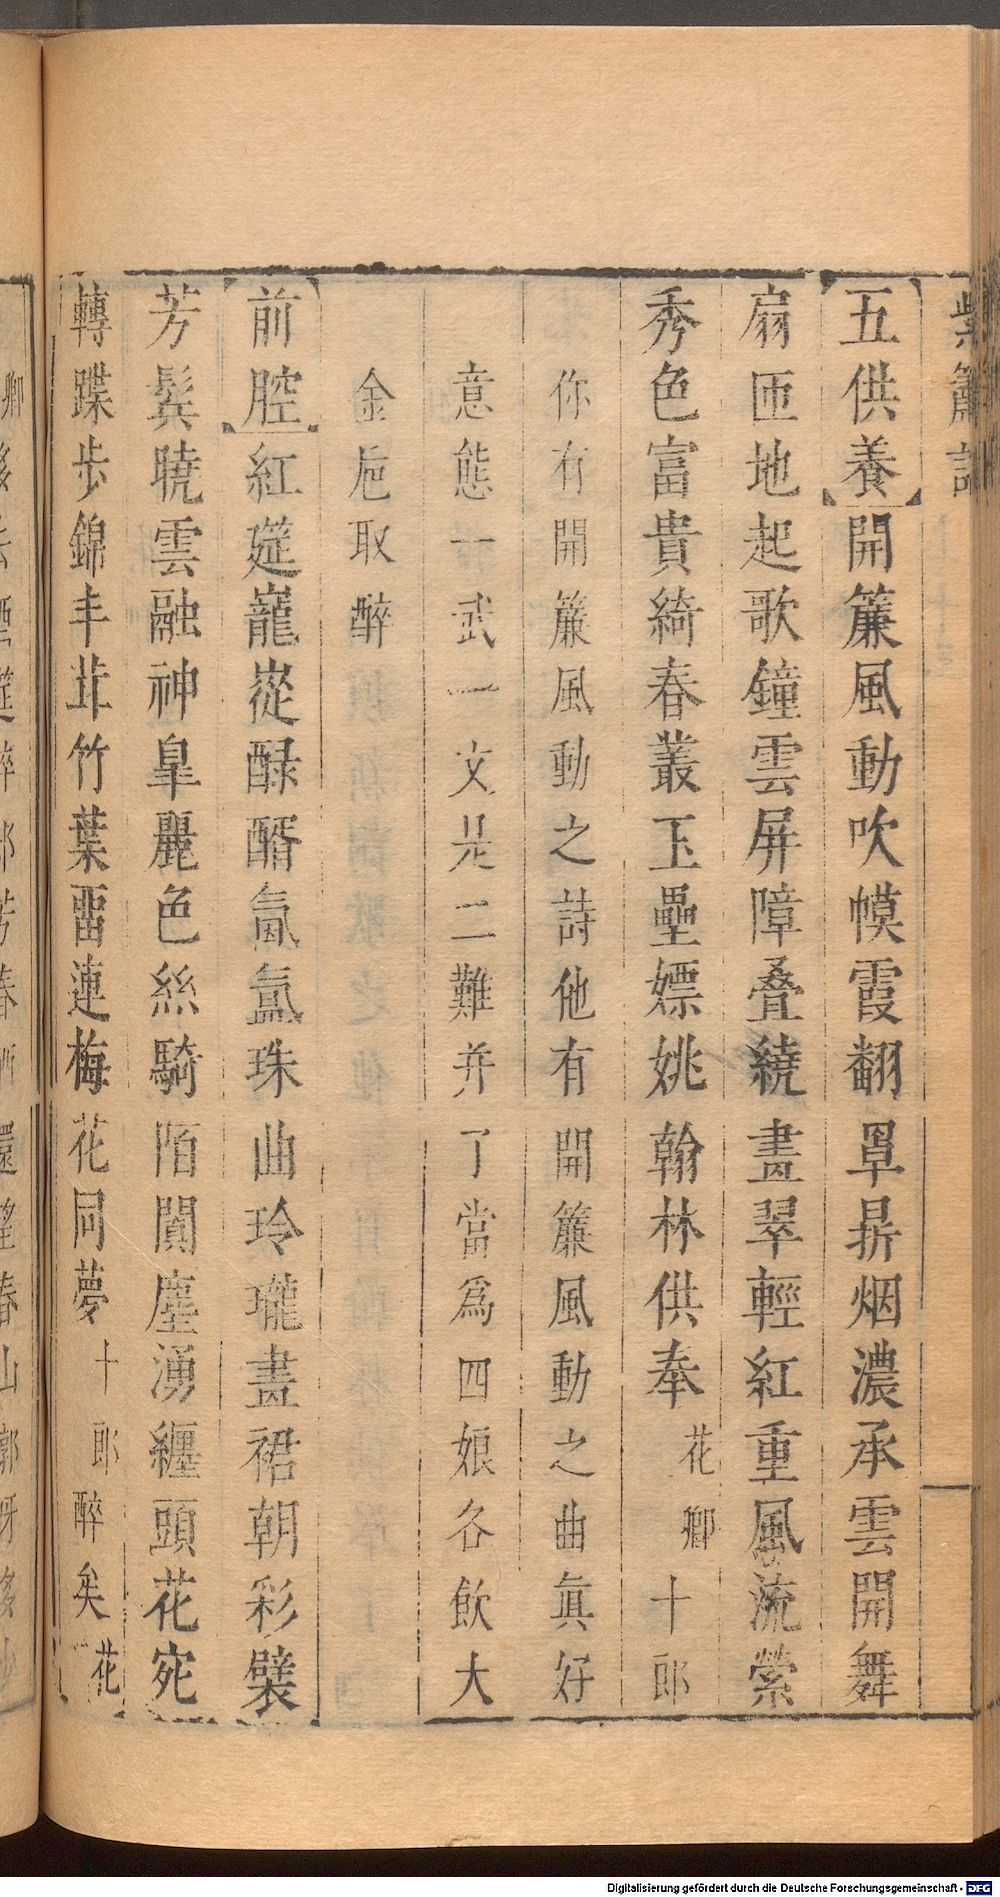 紫簫記
五供養開簾風動吹幙霞翻罩㫼烟濃承雲開舞
扇匝地起歌鐘雲屏障叠繞畫翠輕紅重風流縈
秀色富貴綺春叢玉壘嫖姚翰林供奉花卿十郎
你有開簾風動之詩他有開簾風動之曲眞好
意態一武一文是二難并了當爲四娘各飲大
金巵取醉
前腔紅筵巃嵸醁醑氤氳珠曲玲瓏畫裙朝彩襞
芳鬓曉雲融神臯麗色絲騎陌闐塵湧纏頭花宛
轉蹀步錦丰茸竹葉畱連梅花同夢十郎醉矣花
Digitalisierung gefördert durch die Deutsche Forschungsgemeinschaft - DFG